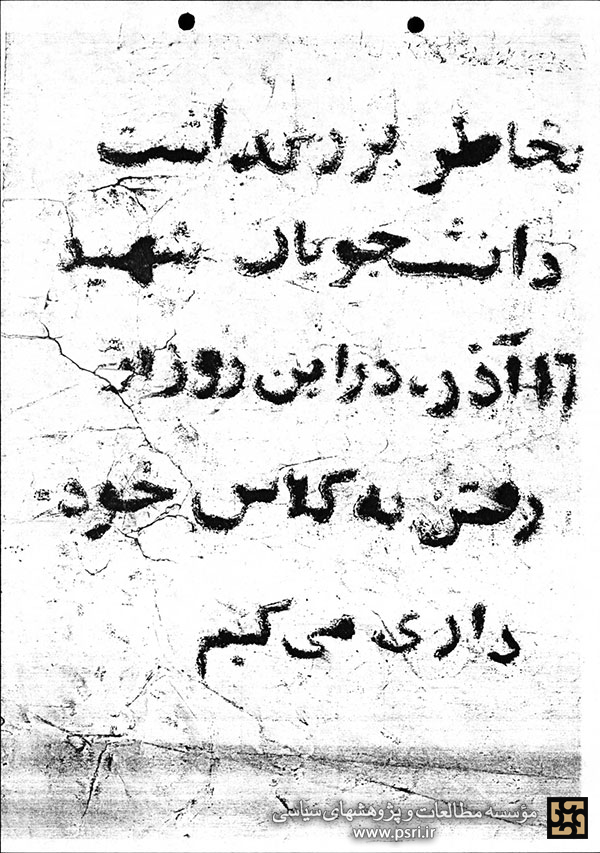 بخاطر بزرگداشت
دانشجویان شهید
17 آذر، در این روز از
رفتن به کلاس خود
داری می کنیم
مؤسسه مطالعات و پژوهشهای سیاسی
www.psri.ir